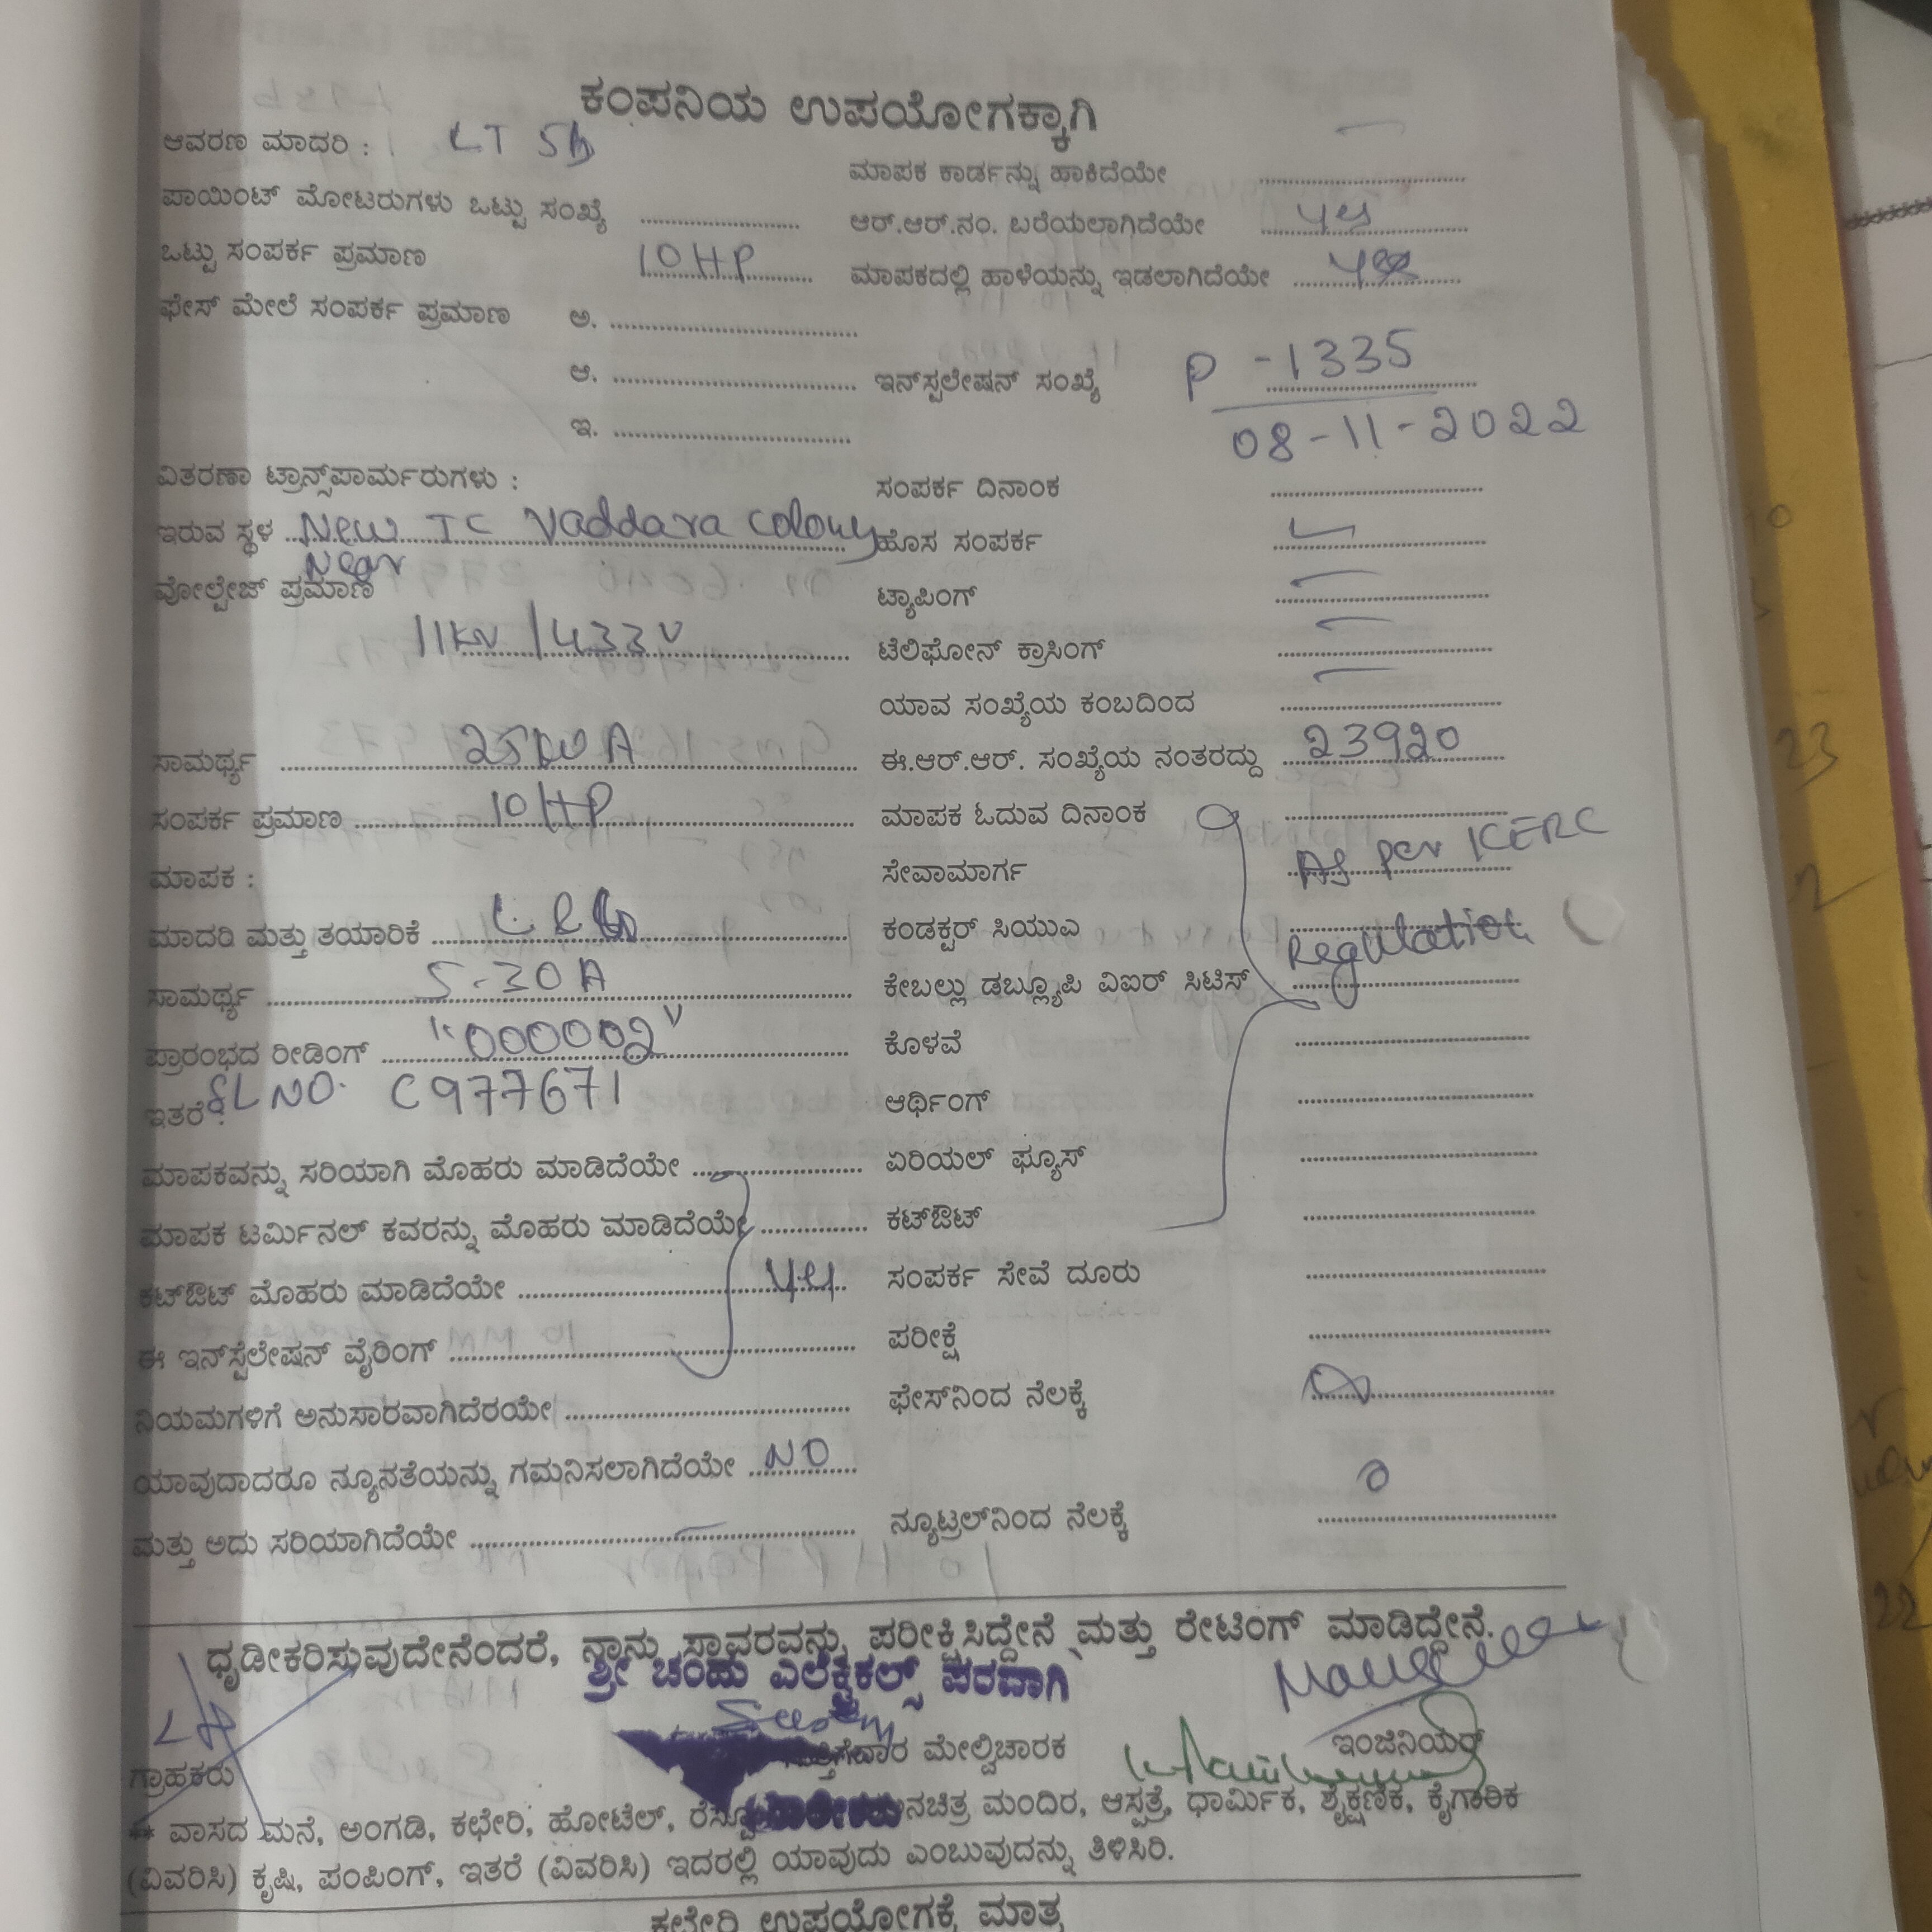 ಕಂಪನಿಯ ಉಪಯೋಗಕ್ಕಾಗಿ
ಆವರಣ ಮಾದರಿ : LT 5b
ಪಾಯಿಂಟ್ ಮೋಟರುಗಳು ಒಟ್ಟು ಸಂಖ್ಯೆ
ಒಟ್ಟು ಸಂಪರ್ಕ ಪ್ರಮಾಣ 10HP
ಫೇಸ್ ಮೇಲೆ ಸಂಪರ್ಕ ಪ್ರಮಾಣ ಅ.
ಆ.
ಇ.
ವಿತರಣಾ ಟ್ರಾನ್ಸ್‌ಪಾರ್ಮರುಗಳು :
ಇರುವ ಸ್ಥಳ New TC Vaddara colony
Near
ವೋಲ್ಟೇಜ್ ಪ್ರಮಾಣ
11KV/433V
ಸಾಮರ್ಥ್ಯ
ಸಂಪರ್ಕ ಪ್ರಮಾಣ 10HP
ಮಾಪಕ :
ಮಾದರಿ ಮತ್ತು ತಯಾರಿಕೆ L&G
ಸಾಮರ್ಥ್ಯ 5-30A
ಪ್ರಾರಂಭದ ರೀಡಿಂಗ್ "000002"
ಇತರೆ : SL NO. C977671
ಮಾಪಕವನ್ನು ಸರಿಯಾಗಿ ಮೊಹರು ಮಾಡಿದೆಯೇ
ಮಾಪಕ ಟರ್ಮಿನಲ್ ಕವರನ್ನು ಮೊಹರು ಮಾಡಿದೆಯೇ
ಕಟ್‌ಔಟ್ ಮೊಹರು ಮಾಡಿದೆಯೇ
ಈ ಇನ್‌ಸ್ಟೆಲೇಷನ್ ವೈರಿಂಗ್
ನಿಯಮಗಳಿಗೆ ಅನುಸಾರವಾಗಿದೆರಯೇ
ಯಾವುದಾದರೂ ನ್ಯೂನತೆಯನ್ನು ಗಮನಿಸಲಾಗಿದೆಯೇ NO
ಮತ್ತು ಅದು ಸರಿಯಾಗಿದೆಯೇ
ಮಾಪಕ ಕಾರ್ಡನ್ನು ಹಾಕಿದೆಯೇ
ಆರ್.ಆರ್.ನಂ. ಬರೆಯಲಾಗಿದೆಯೇ yes
ಮಾಪಕದಲ್ಲಿ ಹಾಳೆಯನ್ನು ಇಡಲಾಗಿದೆಯೇ yes
ಇನ್‌ಸ್ಟಲೇಷನ್ ಸಂಖ್ಯೆ P-1335
08-11-2022
ಸಂಪರ್ಕ ದಿನಾಂಕ
ಹೊಸ ಸಂಪರ್ಕ
ಟ್ಯಾಪಿಂಗ್
ಟೆಲಿಫೋನ್ ಕ್ರಾಸಿಂಗ್
ಯಾವ ಸಂಖ್ಯೆಯ ಕಂಬದಿಂದ
ಈ.ಆರ್.ಆರ್. ಸಂಖ್ಯೆಯ ನಂತರದ್ದು 23920
ಮಾಪಕ ಓದುವ ದಿನಾಂಕ
ಸೇವಾಮಾರ್ಗ As per KERC
ಕಂಡಕ್ಟರ್ ಸಿಯುಎ Regulation
ಕೇಬಲ್ಲು ಡಬ್ಲ್ಯೂಪಿ ವಿಐರ್ ಸಿಟಿಸ್
ಕೊಳವೆ
ಆರ್ಥಿಂಗ್
ಏರಿಯಲ್ ಫ್ಯೂಸ್
ಕಟ್‌ಔಟ್
ಸಂಪರ್ಕ ಸೇವೆ ದೂರು
ಪರೀಕ್ಷೆ
ಫೇಸ್‌ನಿಂದ ನೆಲಕ್ಕೆ
ನ್ಯೂಟ್ರಲ್‌ನಿಂದ ನೆಲಕ್ಕೆ
ಧೃಡೀಕರಿಸುವುದೇನೆಂದರೆ, ನಾನು ಸ್ಥಾವರವನ್ನು ಪರೀಕ್ಷಿಸಿದ್ದೇನೆ ಮತ್ತು ರೇಟಿಂಗ್ ಮಾಡಿದ್ದೇನೆ.
ಶ್ರೀ ಚಂದು ಎಲೆಕ್ಟ್ರಿಕಲ್ಸ್ ಪರವಾಗಿ
ಗ್ರಾಹಕರು ಮೇಲ್ವಿಚಾರಕ ಇಂಜಿನಿಯರ್
** ವಾಸದ ಮನೆ, ಅಂಗಡಿ, ಕಛೇರಿ, ಹೋಟೆಲ್, ಮಂದಿರ, ಆಸ್ಪತ್ರೆ, ಧಾರ್ಮಿಕ, ಶೈಕ್ಷಣಿಕ, ಕೈಗಾರಿಕ
(ವಿವರಿಸಿ) ಕೃಷಿ, ಪಂಪಿಂಗ್, ಇತರೆ (ವಿವರಿಸಿ) ಇದರಲ್ಲಿ ಯಾವುದು ಎಂಬುವುದನ್ನು ತಿಳಿಸಿರಿ.
ಕಛೇರಿ ಉಪಯೋಗಕ್ಕೆ ಮಾತ್ರ